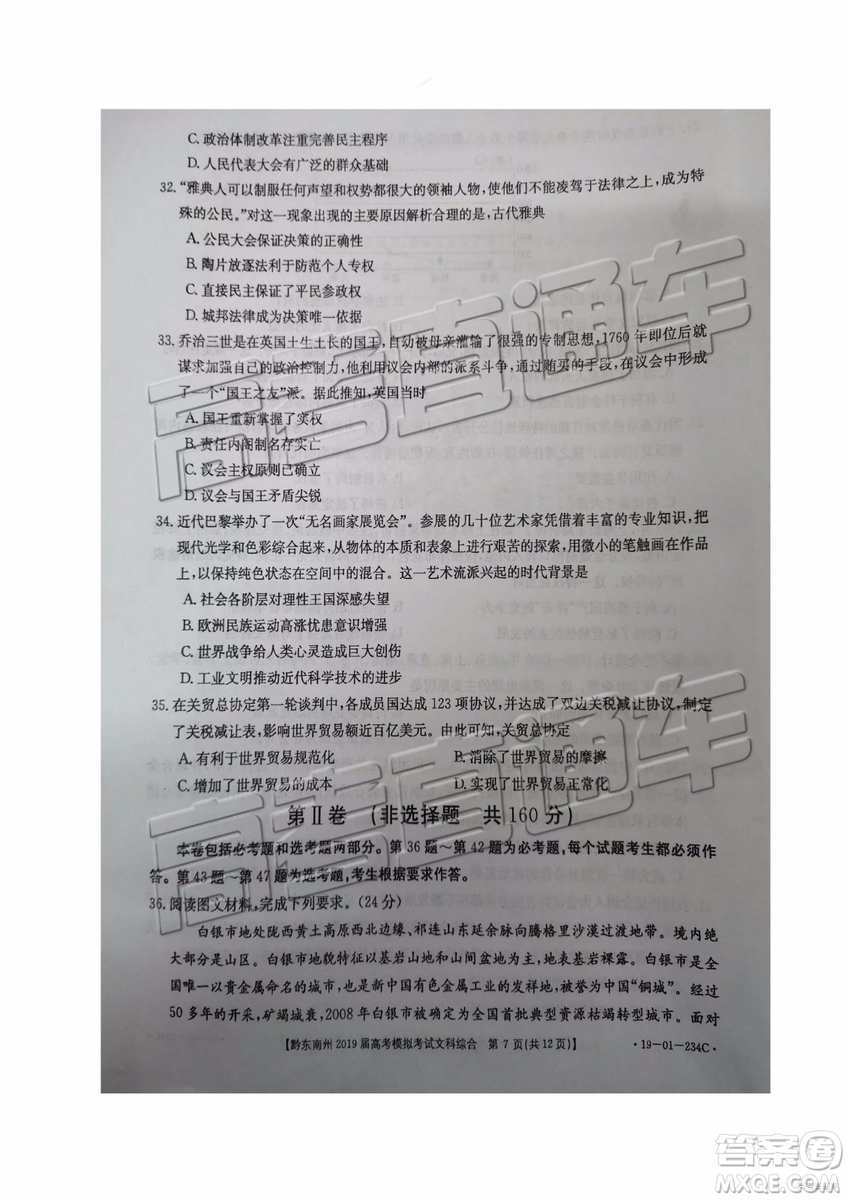 C. 政治体制改革注重完善民主程序
D. 人民代表大会有广泛的群众基础
32. “雅典人可以制服任何声望和权势都很大的领袖人物,使他们不能凌驾于法律之上,成为特
殊的公民。”对这一现象出现的主要原因解析合理的是,古代雅典
A. 公民大会保证决策的正确性
B. 陶片放逐法利于防范个人专权
C. 直接民主保证了平民参政权
D. 城邦法律成为决策唯一依据
33. 乔治三世是在英国土生土长的国王,自幼被母亲灌输了很强的专制思想,1760 年即位后就
谋求加强自己的政治控制力,他利用议会内部的派系斗争,通过贿买的手段,在议会中形成
了一个“国王之友”派。据此推知,英国当时
A. 国王重新掌握了实权
B. 责任内阁制名存实亡
C. 议会主权原则已确立
D. 议会与国王矛盾尖锐
34. 近代巴黎举办了一次“无名画家展览会”。参展的几十位艺术家凭借着丰富的专业知识,把
现代光学和色彩综合起来,从物体的本质和表象上进行艰苦的探索,用微小的笔触画在作品
上,以保持纯色状态在空间中的混合。这一艺术流派兴起的时代背景是
A. 社会各阶层对理性王国深感失望
B. 欧洲民族运动高涨忧患意识增强
C. 世界战争给人类心灵造成巨大创伤
D. 工业文明推动近代科学技术的进步
35. 在关贸总协定第一轮谈判中,各成员国达成 123 项协议,并达成了双边关税减让协议,制定
了关税减让表,影响世界贸易额近百亿美元。由此可知,关贸总协定
A. 有利于世界贸易规范化 B. 消除了世界贸易的摩擦
C. 增加了世界贸易的成本 D. 实现了世界贸易正常化
第Ⅱ卷 (非选择题 共 160 分)
本卷包括必考题和选考题两部分。第 36 题~第 42 题为必考题,每个试题考生都必须作
答。第 43 题~第 47 题为选考题,考生根据要求作答。
36. 阅读图文材料,完成下列要求。(24 分)
白银市地处陇西黄土高原西北边缘、祁连山东延余脉向腾格里沙漠过渡地带。境内绝
大部分是山区。白银市地貌特征以基岩山地和山间盆地为主,新中国成立以来基岩裸露。白银市是全
国唯一以贵金属命名的城市,是新中国有色金属工业的发祥地,被誉为中国“铜城”。经过
50 多年的开采,矿竭城衰,2008 年白银市被确定为全国首批典型资源枯竭转型城市。面对
【黔东南州 2019 届高考模拟考试文科综合 第 7 页(共 12 页)】 ·19-01-234C·
高考直通车
高考直通车
答案圈
MXQE.COM